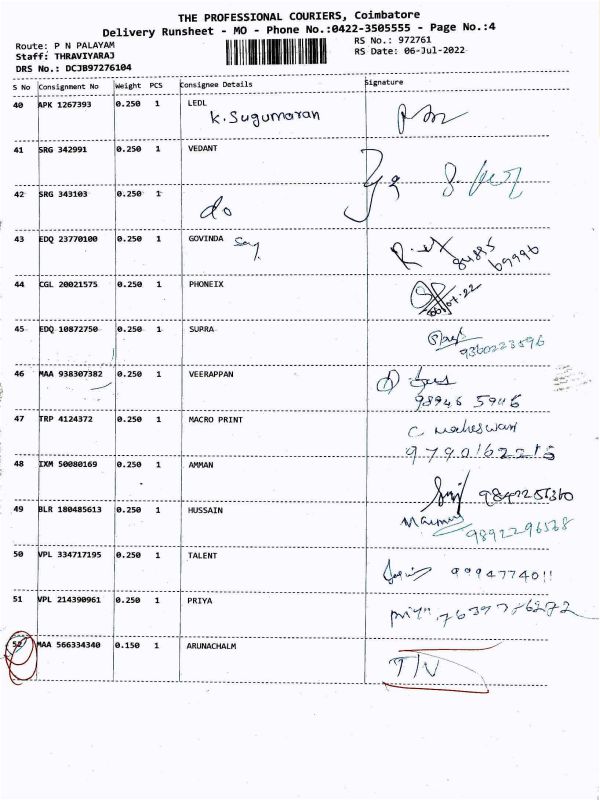 THE PROFESSIONAL COURIERS, Coimbatore
Delivery Runsheet - MO - Phone No.:0422-3505555 - Page No.:4
Route: P N PALAYAM
Staff: THRAVIYARAJ
DRS No.: DCJB97276104
RS No.: 972761
RS Date: 06-Jul-2022
S No Consignment No Weight PCS Consignee Details Signature
40 APK 1267393 0.250 1 LEDL
K. Sugumaran
41 SRG 342991 0.250 1 VEDANT
42 SRG 343103 0.250 1
do
43 EDQ 23770100 0.250 1 GOVINDA
44 CGL 20021575 0.250 1 PHONEIX
45 EDQ 10872750 0.250 1 SUPRA
9360223596
46 MAA 938307382 0.250 1 VEERAPPAN
98946 5946
47 TRP 4124372 0.250 1 MACRO PRINT
C maheswari
9790162215
48 IXM 50080169 0.250 1 AMMAN
49 BLR 180485613 0.250 1 HUSSAIN
9892296568
50 VPL 334717195 0.250 1 TALENT
51 VPL 214390961 0.250 1 PRIYA
52 MAA 566334340 0.150 1 ARUNACHALM